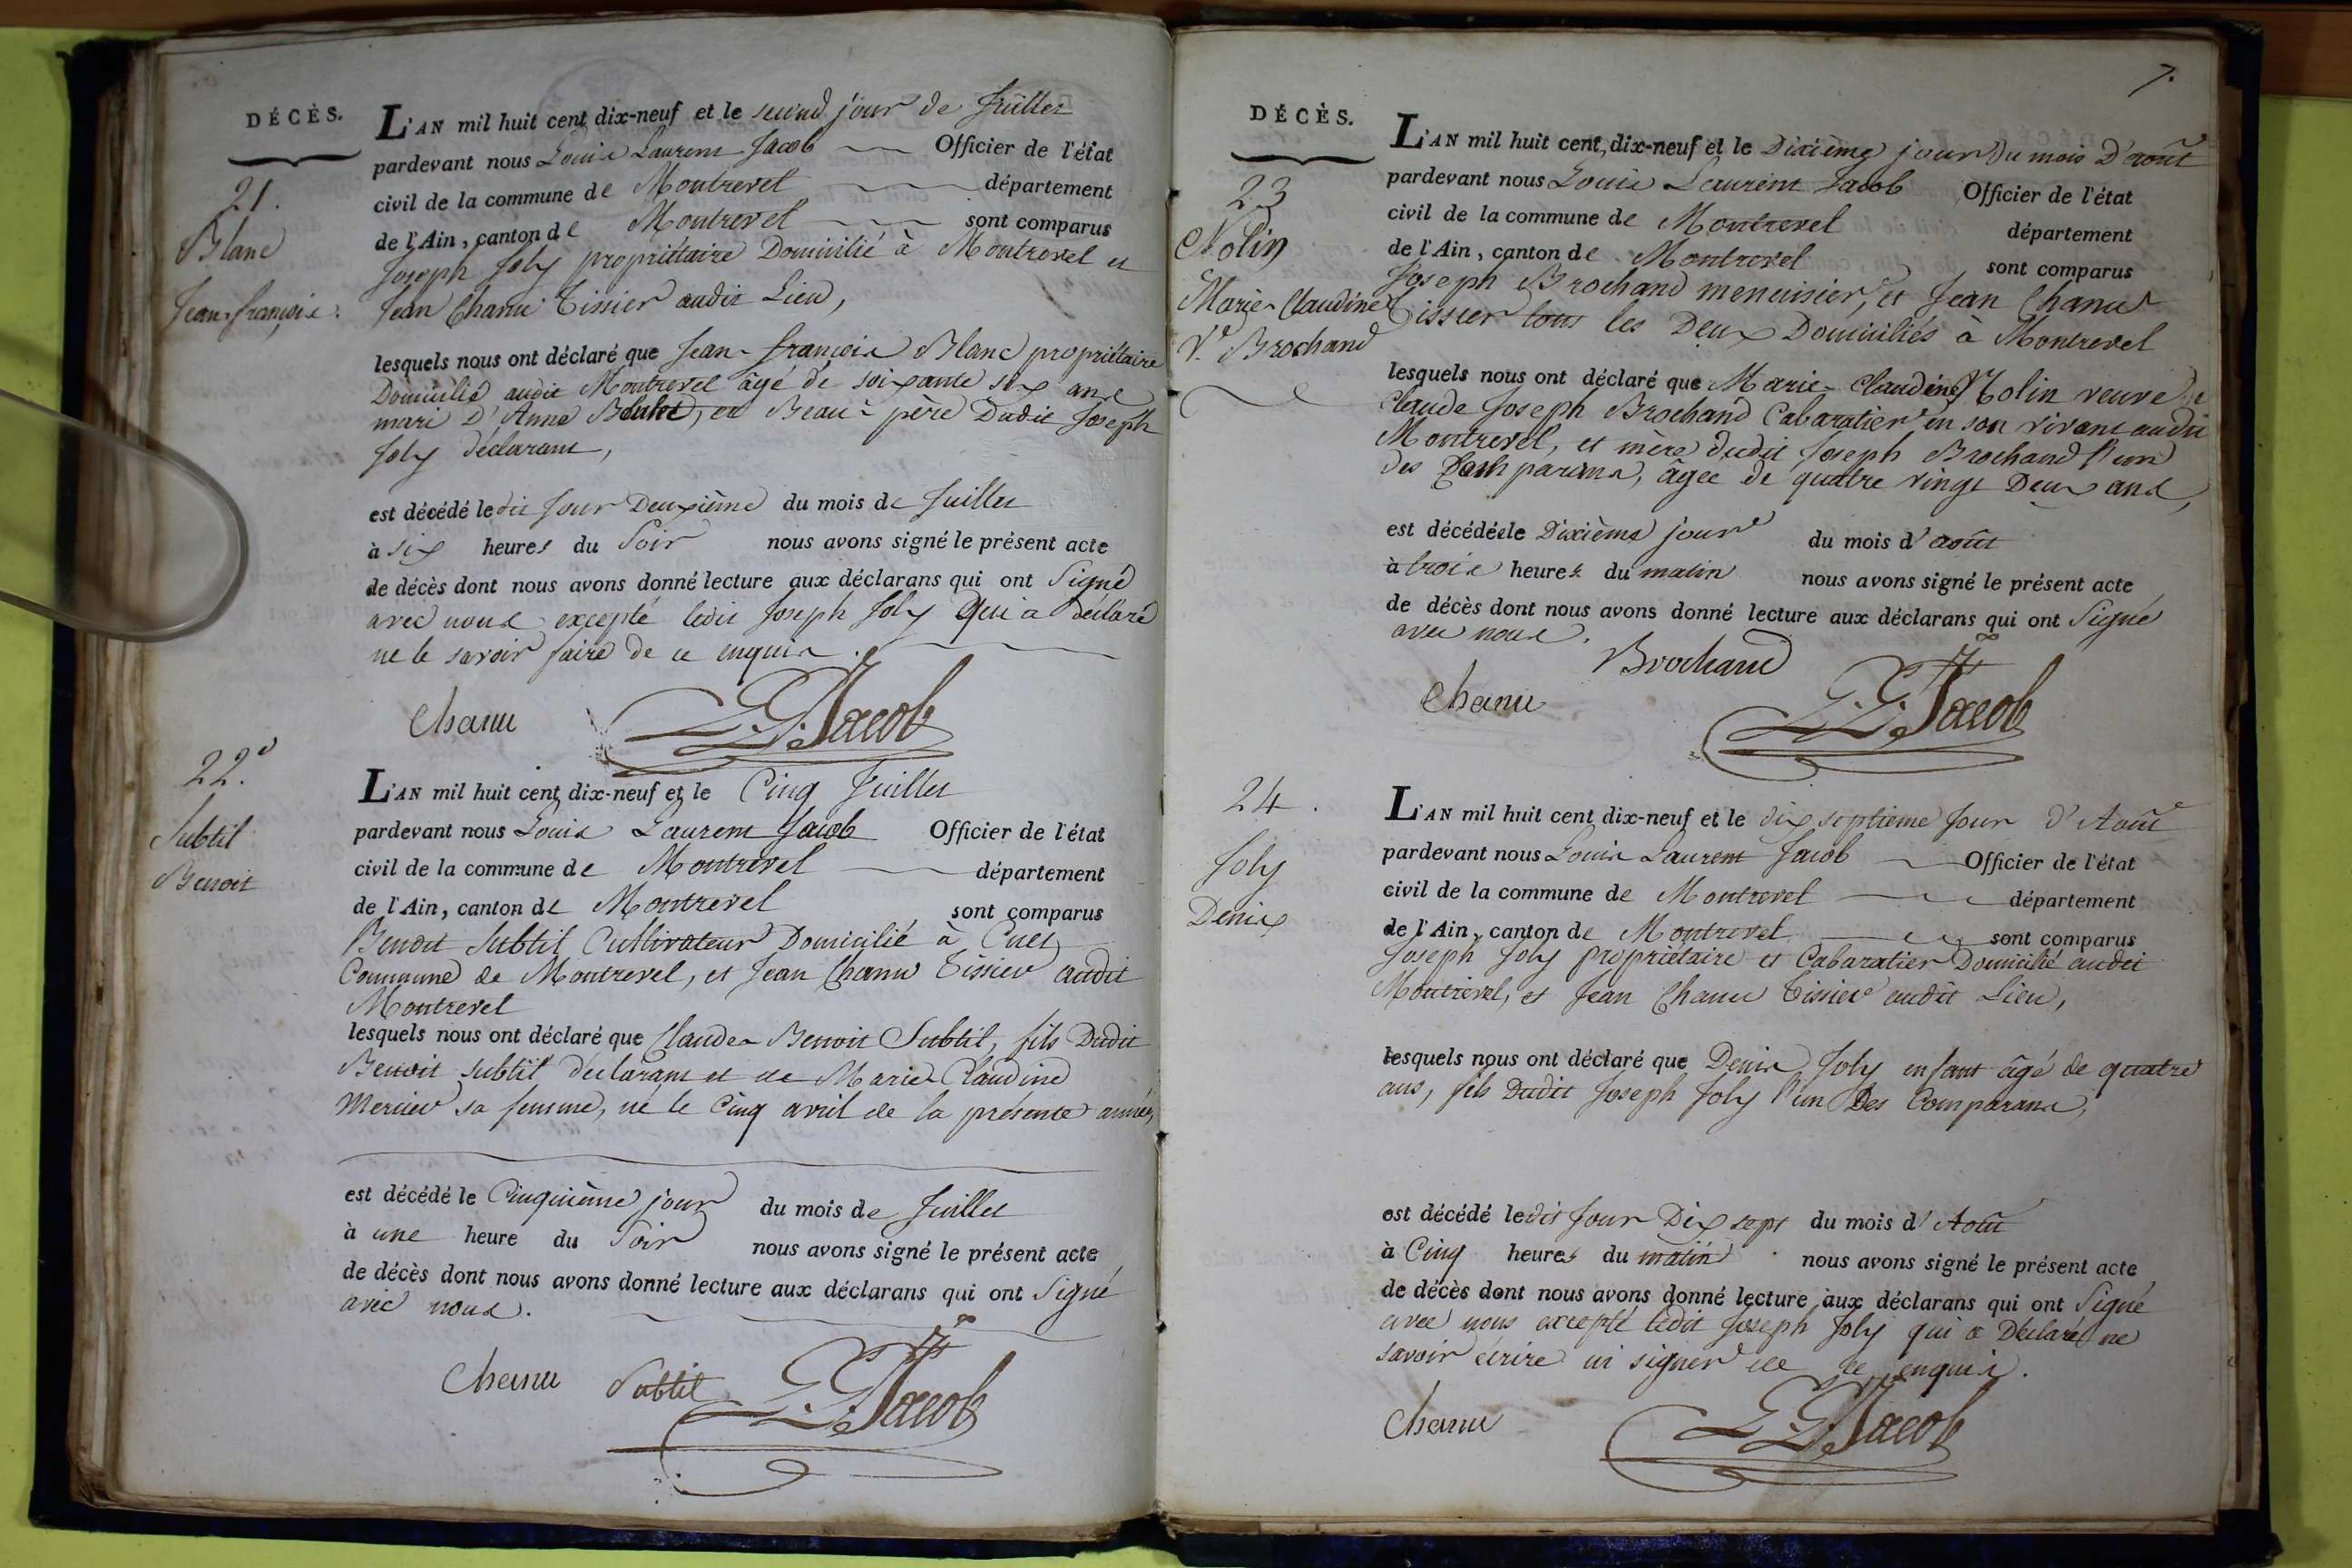 DÉCÈS.
21.
Blanc
Jean-françois.
L'AN mil huit cent dix-neuf et le second jour de Juillet
pardevant nous Louis Laurent Jacob Officier de l'état
civil de la commune de Montrevel département
de l'Ain, canton de Montrevel sont comparus
Joseph Joly propriétaire Domicilié à Montrevel et
Jean Chanu Tissier audit Lieu,
lesquels nous ont déclaré que Jean-françois Blanc propriétaire
Domicilié audit Montrevel âgé de soixante six ans
mari D'Anne et Beau-père Dudit Joseph
Joly déclarant,
est décédé ledit Jour Deuxième du mois de Juillet
à six heures du Soir nous avons signé le présent acte
de décès dont nous avons donné lecture aux déclarans qui ont Signé
avec nous excepté ledit Joseph Joly Qui a déclaré
ne le savoir faire de ce enquis.
Chanu L. L. Jacob
22.e
Subtil
Benoit
L'AN mil huit cent dix-neuf et le Cinq Juillet
pardevant nous Louis Laurent Jacob Officier de l'état
civil de la commune de Montrevel département
de l'Ain, canton de Montrevel sont comparus
Benoit Subtil Cultivateur Domicilié à Cuet
Commune de Montrevel, et Jean Chanu Tissier audit
Montrevel
lesquels nous ont déclaré que Claude-Benoit Subtil, fils Dudit
Benoit Subtil déclarant et de Marie-Claudine
Mercier sa femme, né le Cinq avril de la présente année,
est décédé le Cinquième jour du mois de Juillet
à une heure du Soir nous avons signé le présent acte
de décès dont nous avons donné lecture aux déclarans qui ont Signé
avec nous.
Chanu Subtil L. L. Jacob
7.
DÉCÈS.
23
Nolin
Marie-Claudine
V.e Brochand
L'AN mil huit cent dix-neuf et le Dixième jour Du mois D'août
pardevant nous Louis Laurent Jacob Officier de l'état
civil de la commune de Montrevel département
de l'Ain, canton de Montrevel sont comparus
Joseph Brochand menuisier, et Jean Chanu
Tissier tous les Deux Domiciliés à Montrevel
lesquels nous ont déclaré que Marie-Claudine Nolin veuve de
Claude Joseph Brochand Cabaratier en son vivant audit
Montrevel, et mère dudit Joseph Brochand l'un
des âgée de quatre vingt Deux ans,
est décédée le Dixième jour du mois d'août
à trois heures du matin nous avons signé le présent acte
de décès dont nous avons donné lecture aux déclarans qui ont Signé
avec nous.
Brochand
Chanu L. L. Jacob
24.
Joly
Denis
L'AN mil huit cent dix-neuf et le dix septième Jour d'Août
pardevant nous Louis Laurent Jacob Officier de l'état
civil de la commune de Montrevel département
de l'Ain, canton de Montrevel sont comparus
Joseph Joly propriétaire et Cabaratier Domicilié audit
Montrevel, et Jean Chanu Tissier audit Lieu,
lesquels nous ont déclaré que Denis Joly enfant âgé de quatre
ans, fils Dudit Joseph Joly l'un Des Comparans,
est décédé ledit Jour Dix sept du mois d'Août
à Cinq heures du matin nous avons signé le présent acte
de décès dont nous avons donné lecture aux déclarans qui ont Signé
avec nous excepté ledit Joseph Joly qui a Déclaré ne
savoir écrire ni signer de ce enquis.
Chanu L. L. Jacob